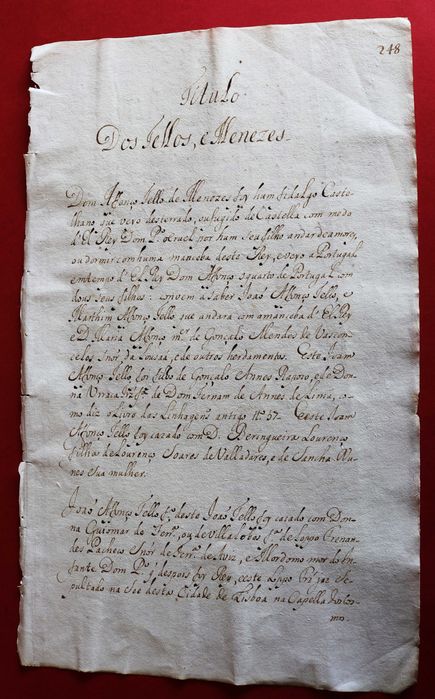 248
Titulo
Dos Tellos, e Menezes.
Dom Affonço Tello de Menezes foy hum fidalgo Caste-
lhano que veyo desterrado, ou fugido de Castella com medo
d'El Rey Dom P.º o cruel por ham seu filho andar de amores,
ou dormir com huma manceba deste Rey, e veyo a Portugal
em tempo d' El Rey Dom Affonço o quarto de Portugal com
dous seus filhos: convem a saber Joaõ Affonço Tello, e
Marthim Affonço Tello que andara com a manceba d' El Rey
e D. Maria Affonço m.er de Gonçalo Mendes de Vascon-
celos Snor' da Lousaã, e de outros herdamentos. Este Joam
Affonço Tello foy filho de Gonçalo Annes Raposo, e de Don-
na Urraca f.ª de Dom Fernam de Annes de Lima, co-
mo diz o Livro das Linhagens antigo tt.º 57. E este Joam
Affonço Tello foy cazado com D. Beringueira Lourenço
filha de Lourenço Soares de Valladares, e de Sancha Nu-
nes sua mulher.
Joaõ Affonço Tello f.º deste Joaõ Tello foy cazado com Don-
na Guiomar de Ferr.ª, ou de Villalobos f.ª de Lopo Frenan-
des Pacheco Snor' de Ferr.ª de Aviz, e Mordomo mor do In-
fante Dom P.º q' despois foy Rey, e este Lopo Frz' jaz Se-
pultado na See desta Cidade de Lisboa na Capella
mo.